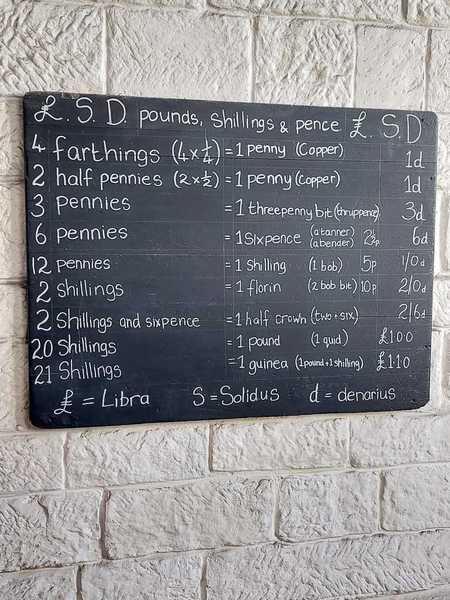 £. S. D. pounds, Shillings & pence £. S. D
4 farthings (4x¼) = 1 penny (Copper) 1d
2 half pennies (2x½) = 1 penny (Copper) 1d
3 pennies = 1 threepenny bit (thruppence) 3d
6 pennies = 1 Sixpence (a tanner) (a bender) 2½p 6d
12 pennies = 1 Shilling (1 bob) 5p 1/0d
2 Shillings = 1 florin (2 bob bit) 10p 2/0d
2 Shillings and sixpence = 1 half crown (two + six) 2/6d
20 Shillings = 1 pound (1 quid) £1·0·0
21 Shillings = 1 guinea (1 pound + 1 shilling) £1·1·0
£ = Libra S = Solidus d = denarius